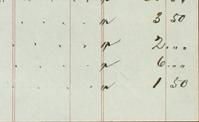 . . . . " 3 50
. . . . " 2 ...
. . . . " 6 ...
. . . . " 1 50